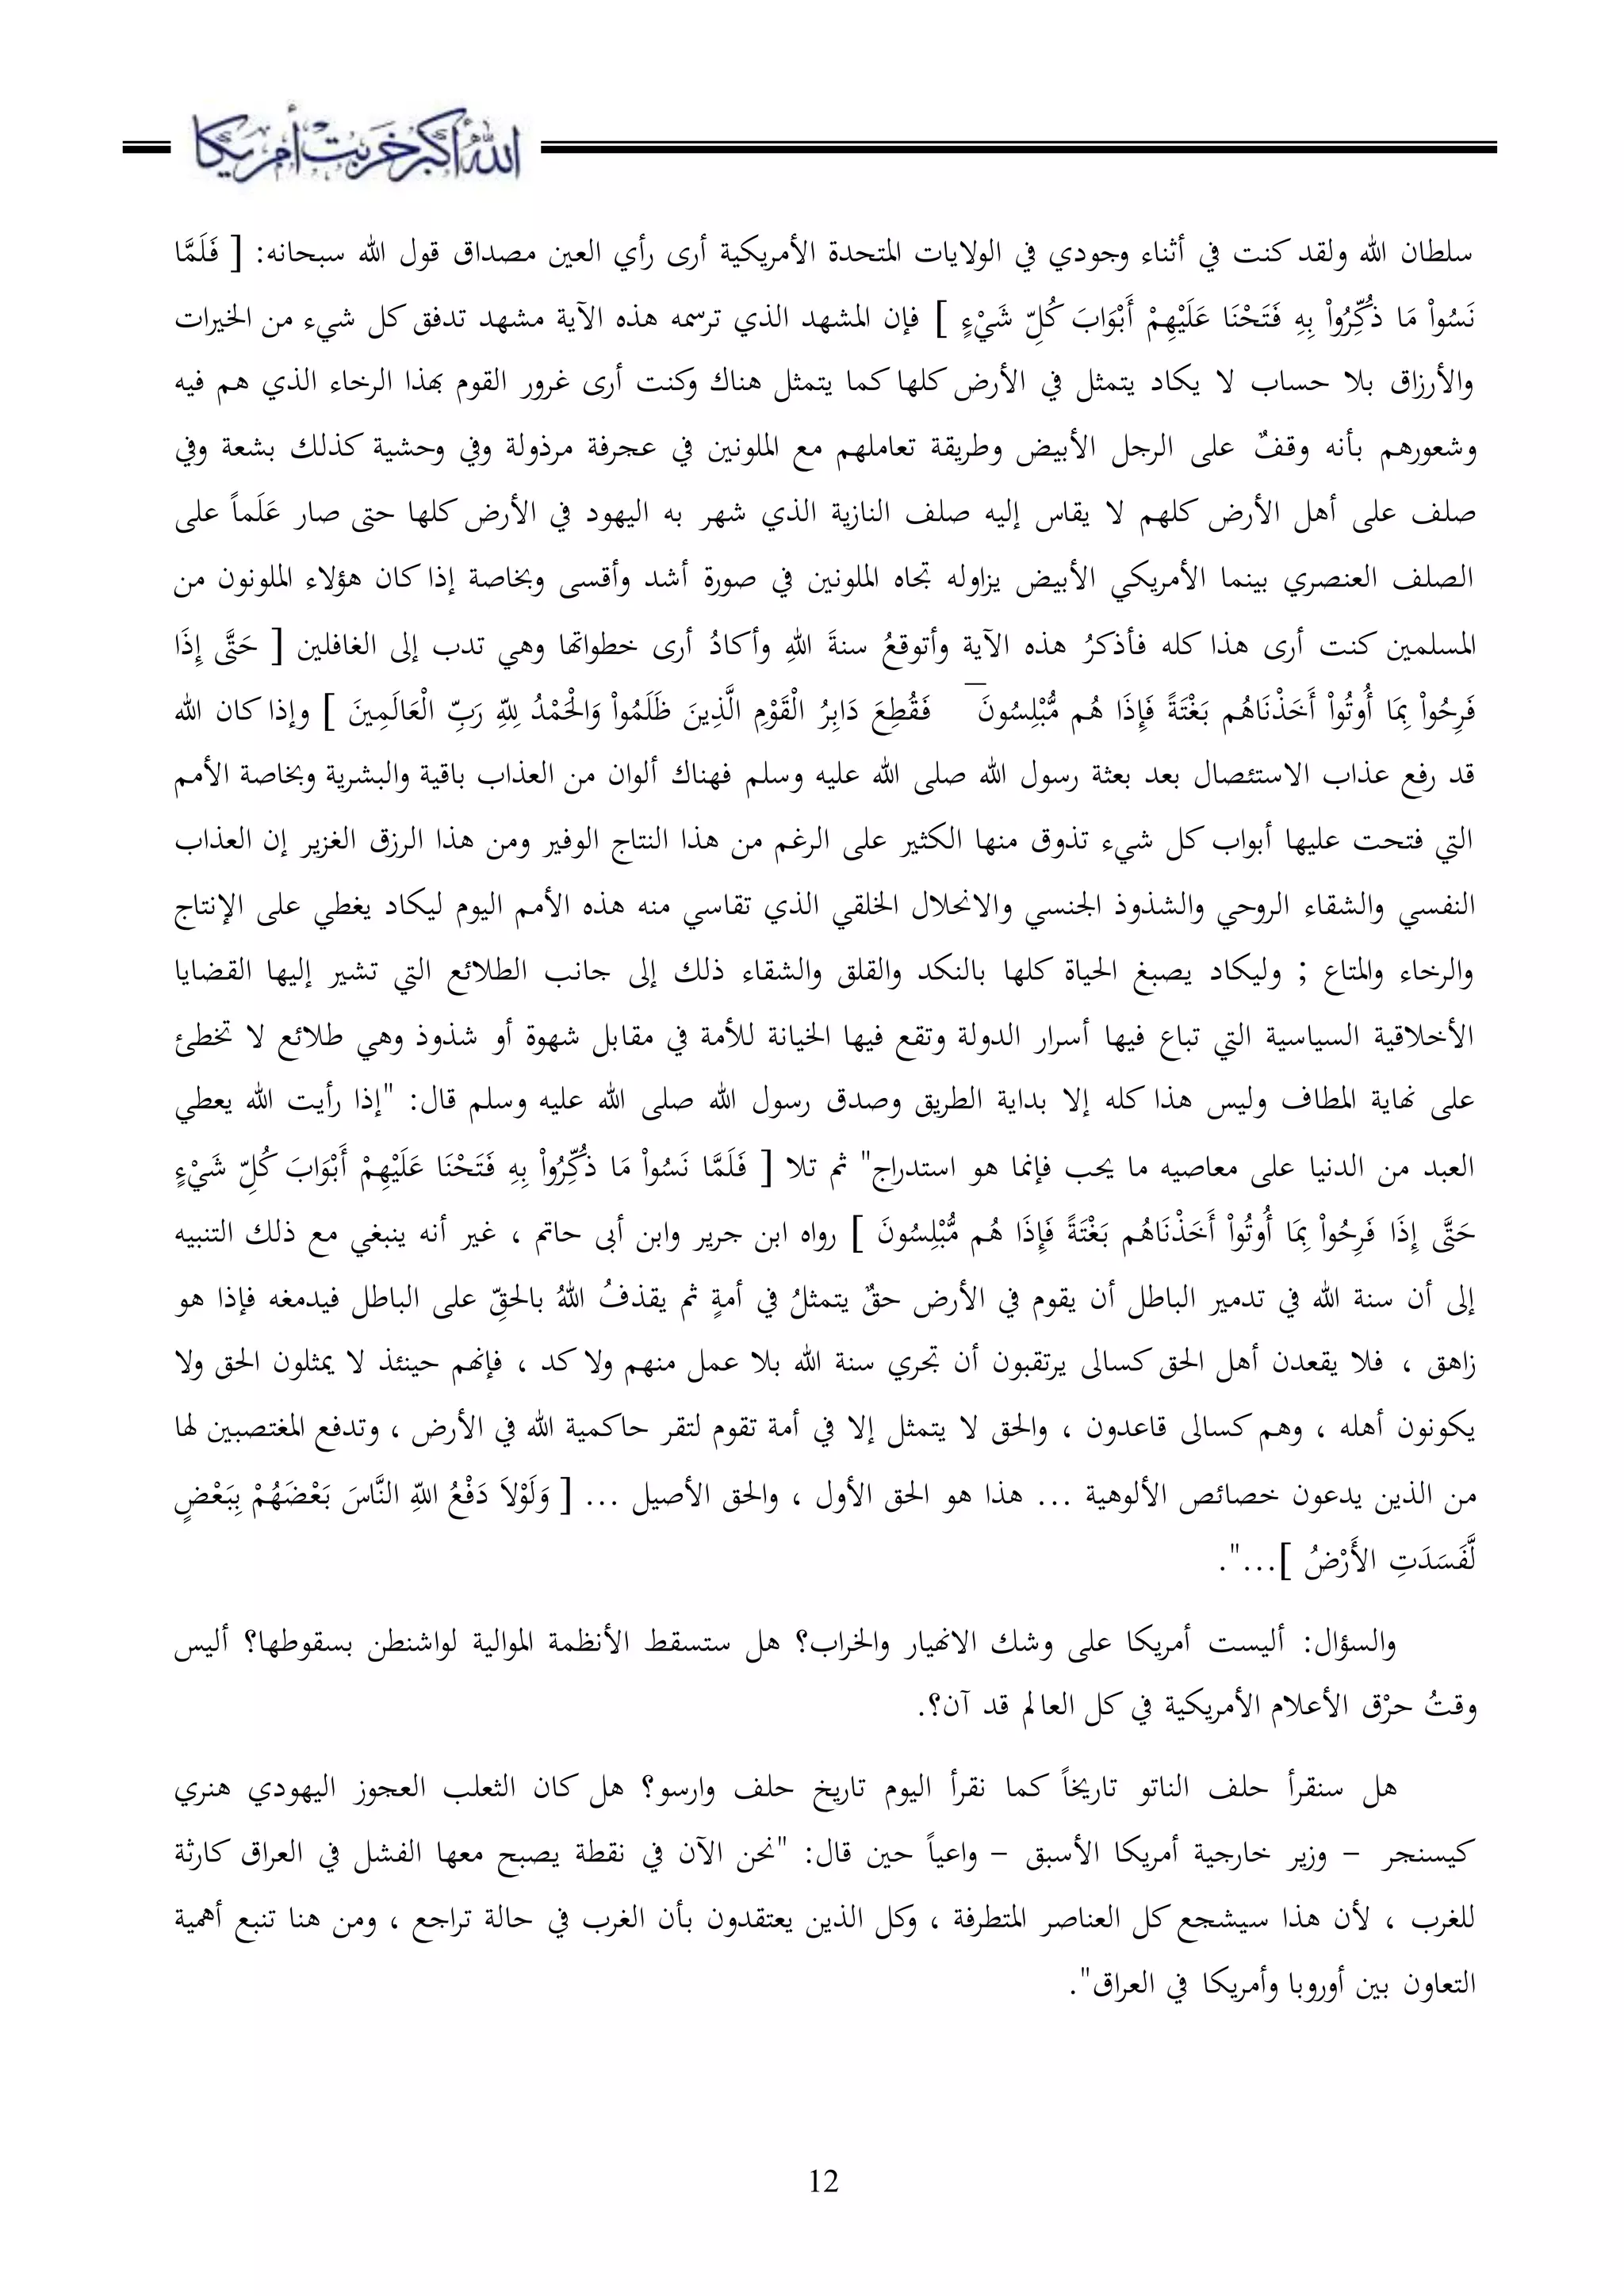 الله أكبر خربت أمريكا
سلطان الله ولقد كنت في أثناء وجودي في الولايات المتحدة الأمريكية أرى رأي العين مصداق قول الله سبحانه: [ فَلَمَّا
نَسُواْ مَا ذُكِّرُواْ بِهِ فَتَحْنَا عَلَيْهِمْ أَبْوَابَ كُلِّ شَيْءٍ ] فإن المشهد الذي ترسمه هذه الآية مشهد تدفق كل شيء من الخيرات
والأرزاق بلا حساب لا يكاد يتمثل في الأرض كلها كما يتمثل هناك وكنت أرى غرور القوم بهذا الرخاء الذي هم فيه
وشعورهم بأنه وقفٌ على الرجل الأبيض وطريقة تعاملهم مع الملونين في عجرفة مرذولة وفي وحشية كذلك بشعة وفي
صلف على أهل الأرض كلهم لا يقاس إليه صلف النازية الذي شهر به اليهود في الأرض كلها حتى صار عَلَماً على
الصلف العنصري بينما الأمريكي الأبيض يزاوله تجاه الملونين في صورة أشد وأقسى وبخاصة إذا كان هؤلاء الملونون من
المسلمين كنت أرى هذا كله فأذكرُ هذه الآية وأتوقعُ سنةَ اللهِ وأكادُ أرى خطواتها وهي تدب إلى الغافلين [ حَتَّى إِذَا
فَرِحُواْ بِمَا أُوتُواْ أَخَذْنَاهُم بَغْتَةً فَإِذَا هُم مُّبْلِسُونَ ¯ فَقُطِعَ دَابِرُ الْقَوْمِ الَّذِينَ ظَلَمُواْ وَالْحَمْدُ لِلّهِ رَبِّ الْعَالَمِينَ ] وإذا كان الله
قد رفع عذاب الاستئصال بعد بعثة رسول الله صلى الله عليه وسلم فهناك ألوان من العذاب باقية والبشرية وبخاصة الأمم
التي فتحت عليها أبواب كل شيء تذوق منها الكثير على الرغم من هذا النتاج الوفير ومن هذا الرزق الغزير إن العذاب
النفسي والشقاء الروحي والشذوذ الجنسي والانحلال الخلقي الذي تقاسي منه هذه الأمم اليوم ليكاد يغطي على الإنتاج
والرخاء والمتاع ; وليكاد يصبغ الحياة كلها بالنكد والقلق والشقاء ذلك إلى جانب الطلائع التي تشير إليها القضايا
الأخلاقية السياسية التي تباع فيها أسرار الدولة وتقع فيها الخيانة للأمة في مقابل شهوة أو شذوذ وهي طلائع لا تخطئ
على نهاية المطاف وليس هذا كله إلا بداية الطريق وصدق رسول الله صلى الله عليه وسلم قال: "إذا رأيت الله يعطي
العبد من الدنيا على معاصيه ما يحب فإنما هو استدراج" ثم تلا [ فَلَمَّا نَسُواْ مَا ذُكِّرُواْ بِهِ فَتَحْنَا عَلَيْهِمْ أَبْوَابَ كُلِّ شَيْءٍ
حَتَّى إِذَا فَرِحُواْ بِمَا أُوتُواْ أَخَذْنَاهُم بَغْتَةً فَإِذَا هُم مُّبْلِسُونَ ] رواه ابن جرير وابن أبى حاتم ، غير أنه ينبغي مع ذلك التنبيه
إلى أن سنة الله في تدمير الباطل أن يقوم في الأرض حقٌ يتمثلُ في أمةٍ ثم يقذفُ اللهُ بالحقِّ على الباطل فيدمغه فإذا هو
زاهق ، فلا يقعدن أهل الحق كسالى يرتقبون أن تجري سنة الله بلا عمل منهم ولا كد ، فإنهم حينئذ لا يمثلون الحق ولا
يكونون أهله ، وهم كسالى قاعدون ، والحق لا يتمثل إلا في أمة تقوم لتقر حاكمية الله في الأرض ، وتدفع المغتصبين لها
من الذين يدعون خصائص الألوهية ... هذا هو الحق الأول ، والحق الأصيل ... [ وَلَوْلاَ دَفْعُ اللّهِ النَّاسَ بَعْضَهُمْ بِبَعْضٍ
لَّفَسَدَتِ الأَرْضُ ]...".
والسؤال: أليست أمريكا على وشك الانهيار والخراب؟ هل ستسقط الأنظمة الموالية لواشنطن بسقوطها؟ أليس
وقتُ حرْق الأعلام الأمريكية في كل العالم قد آن؟.
هل سنقرأ حلف الناتو تاريخاً كما نقرأ اليوم تاريخ حلف وارسو؟ هل كان الثعلب العجوز اليهودي هنري
كيسنجر – وزير خارجية أمريكا الأسبق – واعياً حين قال: "نحن الآن في نقطة يصبح معها الفشل في العراق كارثة
للغرب ، لأن هذا سيشجع كل العناصر المتطرفة ، وكل الذين يعتقدون بأن الغرب في حالة تراجع ، ومن هنا تنبع أهمية
التعاون بين أوروبا وأمريكا في العراق".
12